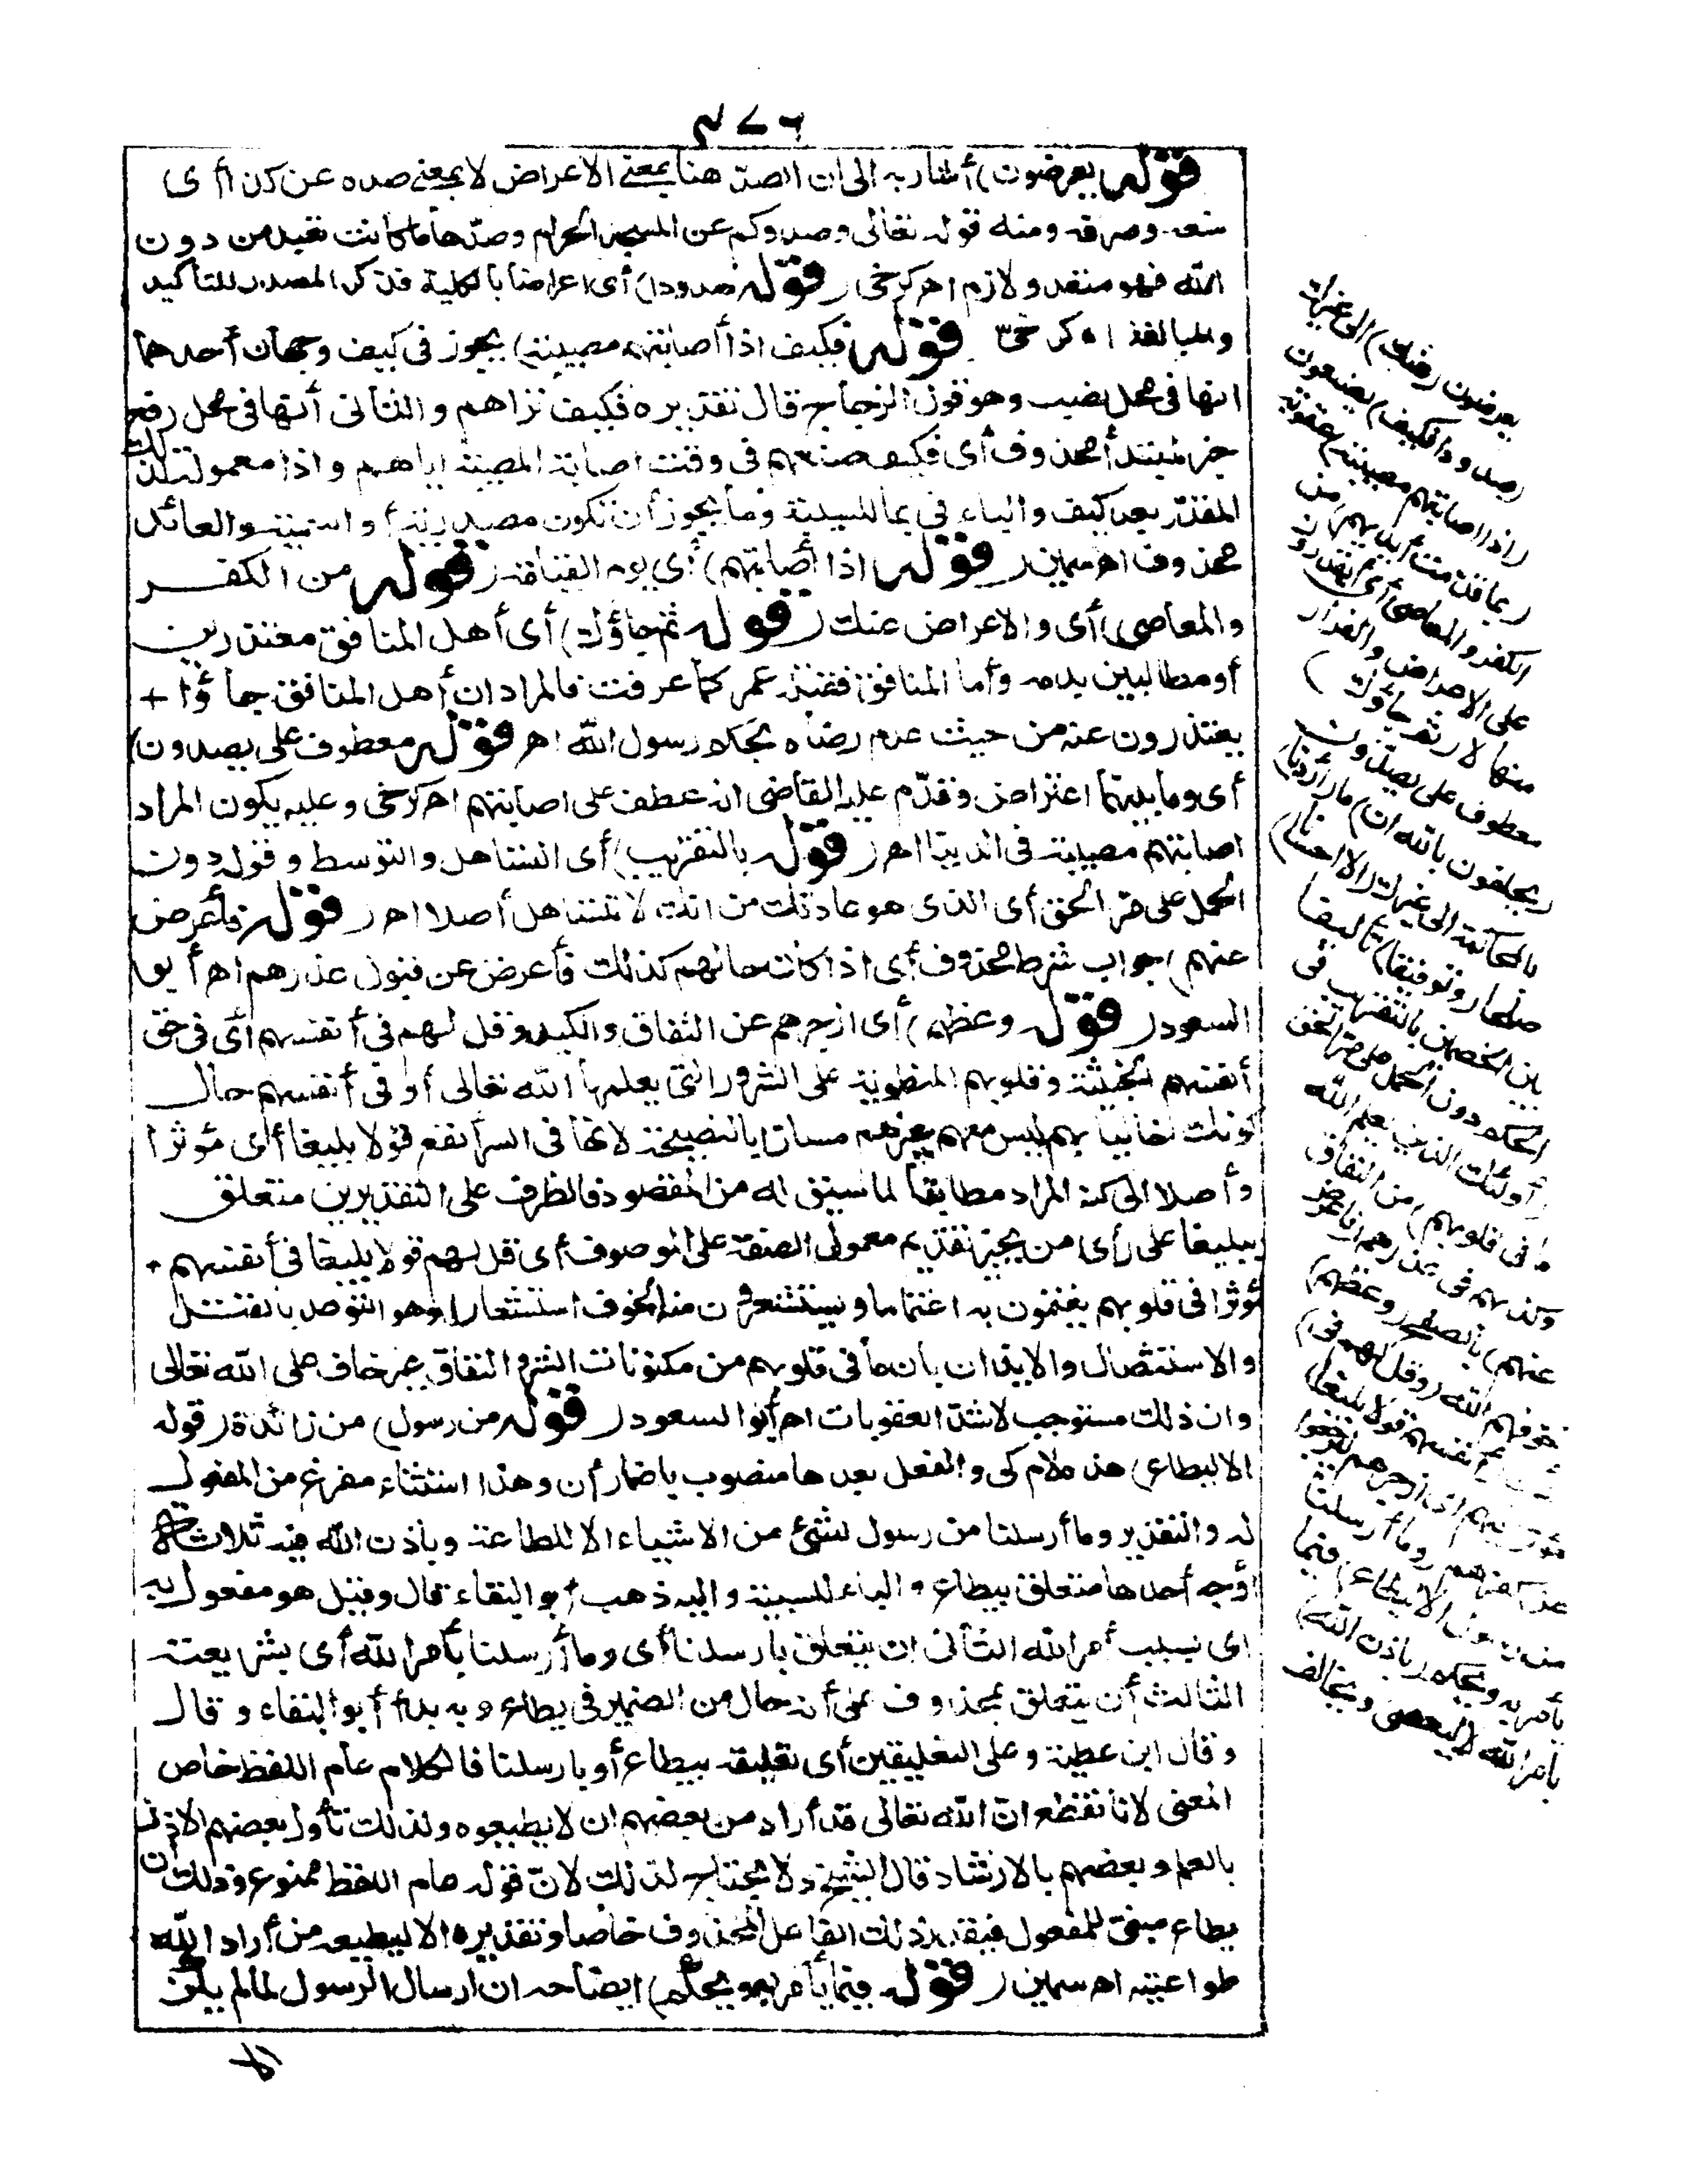 ٣٧٦
قوله يعرضون) أشار به الى ان الصد هنا بمعنى الاعراض لا بمعنى صده عن كذا أى
منعه وصرفه ومنه قوله تعالى وصدوكم عن المسجد الحرام وصدها ما كانت تعبد من دون
الله فهو متعد ولازم اهـ كرخى (قوله صدودا) أى اعراضا بالكلية فذكر المصدر للتأكيد
وللمبالغة اهـ كرخى (قوله فكيف اذا أصابتهم مصيبة) يجوز فى كيف وجهان أحدهما
انها فى محل نصب وهو قول الزجاج قال تقديره فكيف تراهم والثانى أنها فى محل رفع
خبر لمبتدأ محذوف أى فكيف صنعهم فى وقت اصابة المصيبة اياهم واذا معمولة لذلك
المقدر بعد كيف والباء فى بما للسببية وما يجوز أن تكون مصدرية أو اسمية والعائد
محذوف اهـ سمين (قوله اذا أصابتهم) أى يوم القيامة (قوله من الكفر
والمعاصى) أى والاعراض عنك (قوله ثم جاؤك) أى أهل المنافق معتذرين
أو مطالبين بدمه وأما المنافق فقتله عمر كما عرفت فالمراد ان أهل المنافق جاؤا +
يعتذرون عنه من حيث عدم رضاه بحكم رسول الله اهـ (قوله معطوف على يصدون)
أى وما بينهما اعتراض وقدم عليه القاضى انه عطف على اصابتهم اهـ كرخى وعليه يكون المراد
اصابتهم مصيبة فى الدنيا اهـ (قوله بالتقريب) أى التساهل والتوسط وقوله دون
الحمل على مر الحق أى الذى هو عادتك من انك لا تتساهل أصلا اهـ (قوله فأعرض
عنهم) جواب شرط محذوف أى اذا كان حالهم كذلك فأعرض عن قبول عذرهم اهـ أبو
السعود (قوله وعظهم) أى ازجرهم عن النفاق والكيد وقل لهم فى أنفسهم أى فى حق
أنفسهم الخبيثة وقلوبهم المنطوية على الشرور التى يعلمها الله تعالى أو فى أنفسهم حال
كونك خاليا بهم ليس معهم غيرهم مسارا بالنصيحة لانها فى السر أنفع قولا بليغا أى مؤثرا
واصلا الى كنه المراد مطابقا لما سيق له من المقصود فالظرف على التقديرين متعلق
ببليغا على رأى من يجيز تقديم معمول الصفة على الموصوف أى قل لهم قولا بليغا فى أنفسهم +
مؤثرا فى قلوبهم يغتمون به اغتماما ويستشعرون منه الخوف استشعارا وهو التوعد بالقتل
والاستئصال والايذان بان ما فى قلوبهم من مكنونات الشر والنفاق غير خاف على الله تعالى
وان ذلك مستوجب لاشد العقوبات اهـ أبو السعود (قوله من رسول) من زائدة (قوله
الا ليطاع) هذه لام كى والفعل بعدها منصوب باضمار أن وهذا استثناء مفرغ من المفعول
له والتقدير وما أرسلنا من رسول لشئ من الاشياء الا للطاعة وباذن الله فيه ثلاثة
أوجه أحدها متعلق بيطاع والباء للسببية واليه ذهب أبو البقاء قال وقيل هو مفعول به
اى بسبب أمر الله الثانى ان يتعلق بارسلنا أى وما أرسلنا بأمر الله أى بشريعته
الثالث أن يتعلق بمحذوف على أنه حال من الضمير فى يطاع وبه بدأ أبو البقاء وقال
وقال ابن عطية وعلى التعليقين أى تعليقه بيطاع أو بارسلنا فالكلام عام اللفظ خاص
المعنى لانا نقطع ان الله تعالى قد أراد من بعضهم ان لا يطيعوه ولذلك تأول بعضهم الاذن
بالعلم وبعضهم بالارشاد قال الشيخ ولا يحتاج لذلك لان قوله عام اللفظ ممنوع وذلك ان
يطاع مبنى للمفعول فيقدر ذلك الفاعل المحذوف خاصا وتقديره الا ليطيعه من أراد الله
طواعيته اهـ سمين (قوله فيما يأمر به ويحكم) ايضاحه ان ارسال الرسول لما لم يكن
يعرضون (عنك) الى غيرك
(صدودا فكيف) يصنعون
(اذا اصابتهم مصيبة) عقوبة
(بما قدمت أيديهم) من
الكفر والمعاصى أى أيقدرون
على الاعراض والفرار
منها لا (ثم جاؤك)
معطوف على يصدون
(يحلفون بالله ان) ما (أردنا)
بالمحاكمة الى غيرك (الا احسانا)
صلحا (وتوفيقا) تأليفا
بين الخصمين بالتقريب فى
الحكم دون الحمل على مر الحق
(أولئك الذين يعلم الله
ما فى قلوبهم) من النفاق
وكذبهم فى عذرهم (فاعرض
عنهم) بالصفح (وعظهم)
خوفهم الله (وقل لهم فى)
أنفسهم قولا بليغا)
مؤثرا فيهم اى ازجرهم ليرجعوا
عن كفرهم (وما أرسلنا
من رسول الا ليطاع) فيما
يأمر به ويحكم (باذن الله)
بأمر الله لا ليعصى ويخالف